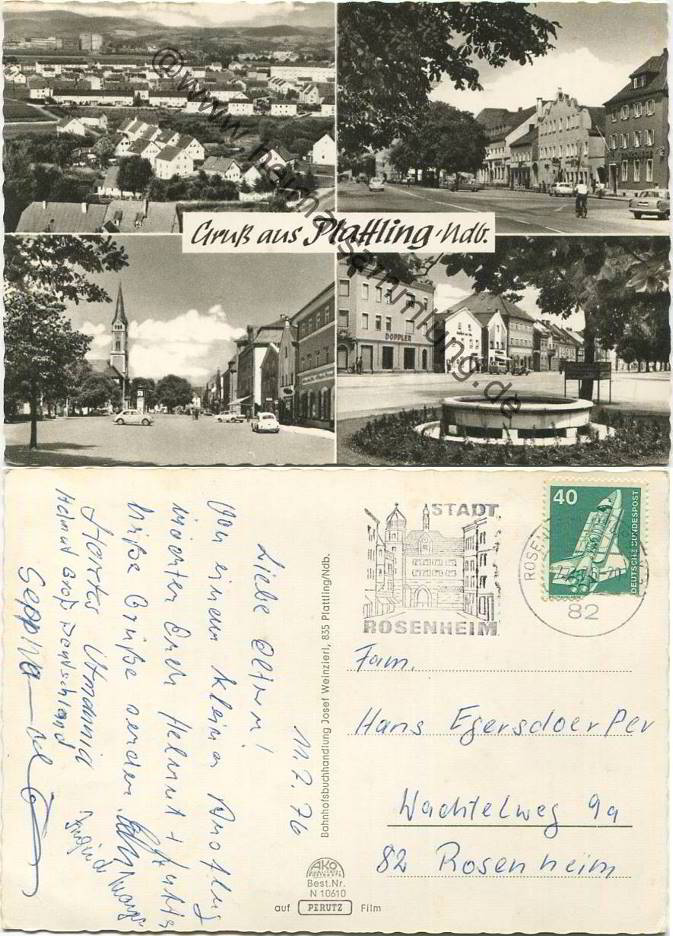 Gruß aus Plattling/Ndb.
DOPPLER
© www.heimatsammlung.de
STADT
ROSENHEIM
40
DEUTSCHE BUNDESPOST
82
Liebe Eltern!
11.7.76
Von einem kleinen Ausflug
möchten Euch Helmut +
liebe Grüße senden.
Helmut Groß Deutschland
Bahnhofsbuchhandlung Josef Weinzierl, 835 Plattling/Ndb.
AKO
Best.Nr.
N 10610
auf PERUTZ Film
Fam.
Hans Egersdoerfer
Wachtelweg 9a
82 Rosenheim